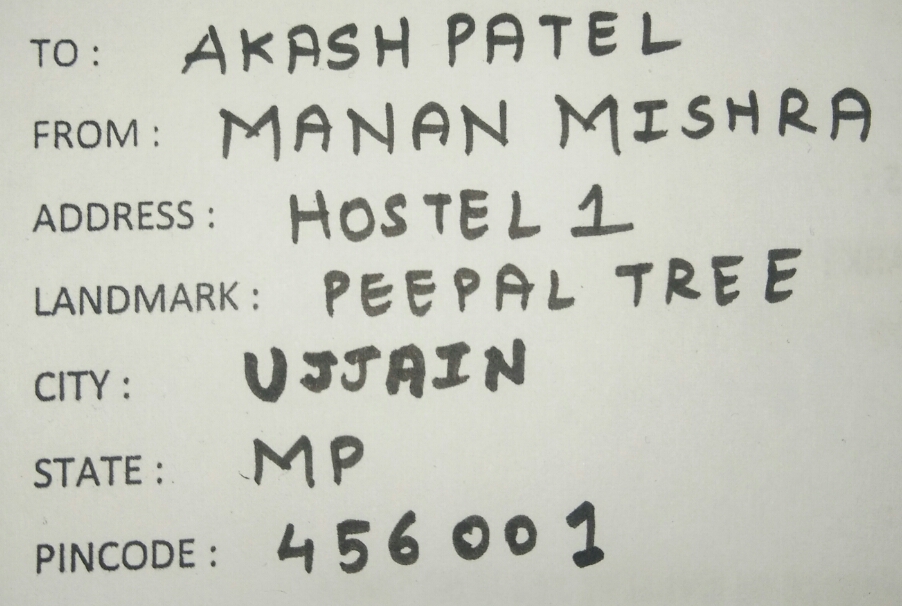 TO : AKASH PATEL
FROM : MANAN MISHRA
ADDRESS : HOSTEL 1
LANDMARK : PEEPAL TREE
CITY : UJJAIN
STATE : MP
PINCODE : 456001